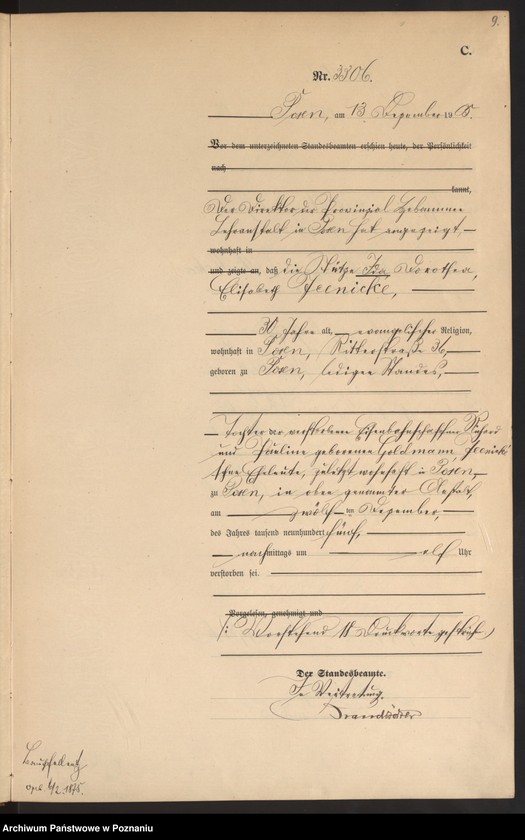 9.
C.
Nr. 3306.
Posen, am 13. Dezember 1905.
Vor dem unterzeichneten Standesbeamten erschien heute, der Persönlichkeit
nach
kannt,
Der Direktor der Provinzial Hebammen
Lehranstalt in Posen hat angezeigt,
wohnhaft in
und zeigte an, daß die Stütze Ida, Dorothea,
Elisabeth Jeenicke,
30 Jahre alt, evangelischer Religion,
wohnhaft in Posen, Ritterstraße 36,
geboren zu Posen, ledigen Standes,
Tochter der verstorbenen Eisenbahnschaffner Richard
und Pauline geborenen Goldmann, Jeenicke
schen Eheleute, zuletzt wohnhaft in Posen,
zu Posen, in oben genannter Anstalt,
am zwölften Dezember,
des Jahres tausend neunhundert fünf,
nachmittags um elf Uhr
verstorben sei.
Vorgelesen, genehmigt und
/: Vorstehend 18 Druckworte gestrichen
Der Standesbeamte.
In Vertretung.
geb. 4/2. 1875.
Archiwum Państwowe w Poznaniu